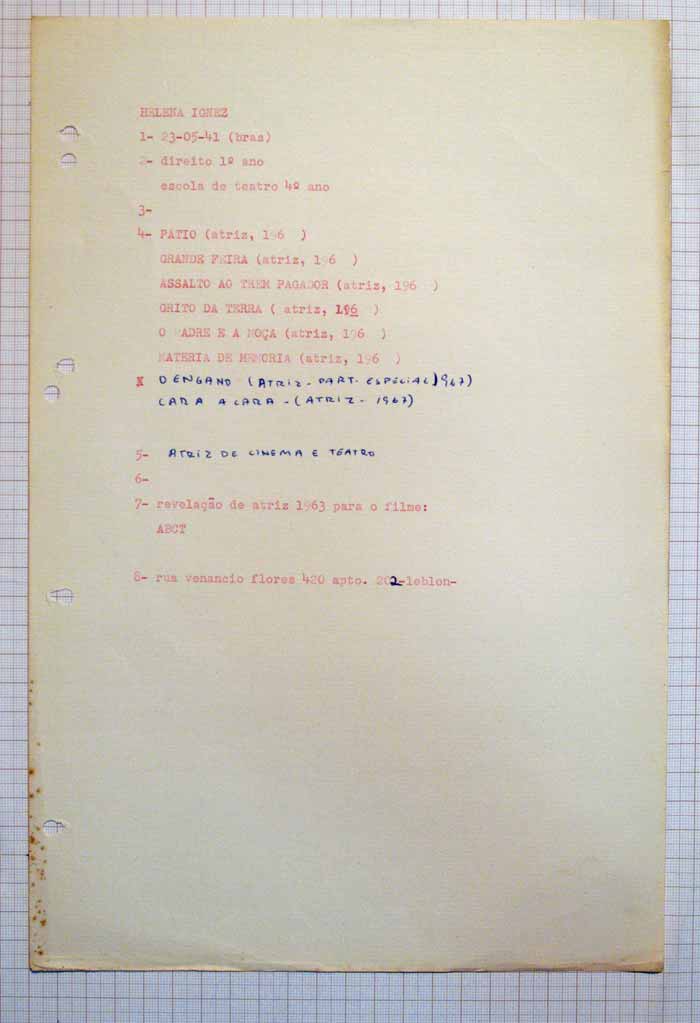 HELENA IGNEZ
1- 23-05-41 (bras)
2- direito 1º ano
escola de teatro 4º ano
3-
4- PATIO (atriz, 196 )
GRANDE FEIRA (atriz, 196 )
ASSALTO AO TREM PAGADOR (atriz, 196 )
GRITO DA TERRA ( atriz, 196 )
O PADRE E A MOÇA (atriz, 196 )
MATERIA DE MEMORIA (atriz, 196 )
X O ENGANO (ATRIZ - PART. ESPECIAL) 1967)
CARA A CARA - (ATRIZ - 1967)
5- ATRIZ DE CINEMA E TEATRO
6-
7- revelação de atriz 1963 para o filme:
ABCT
8- rua venancio flores 420 apto. 202-leblon-